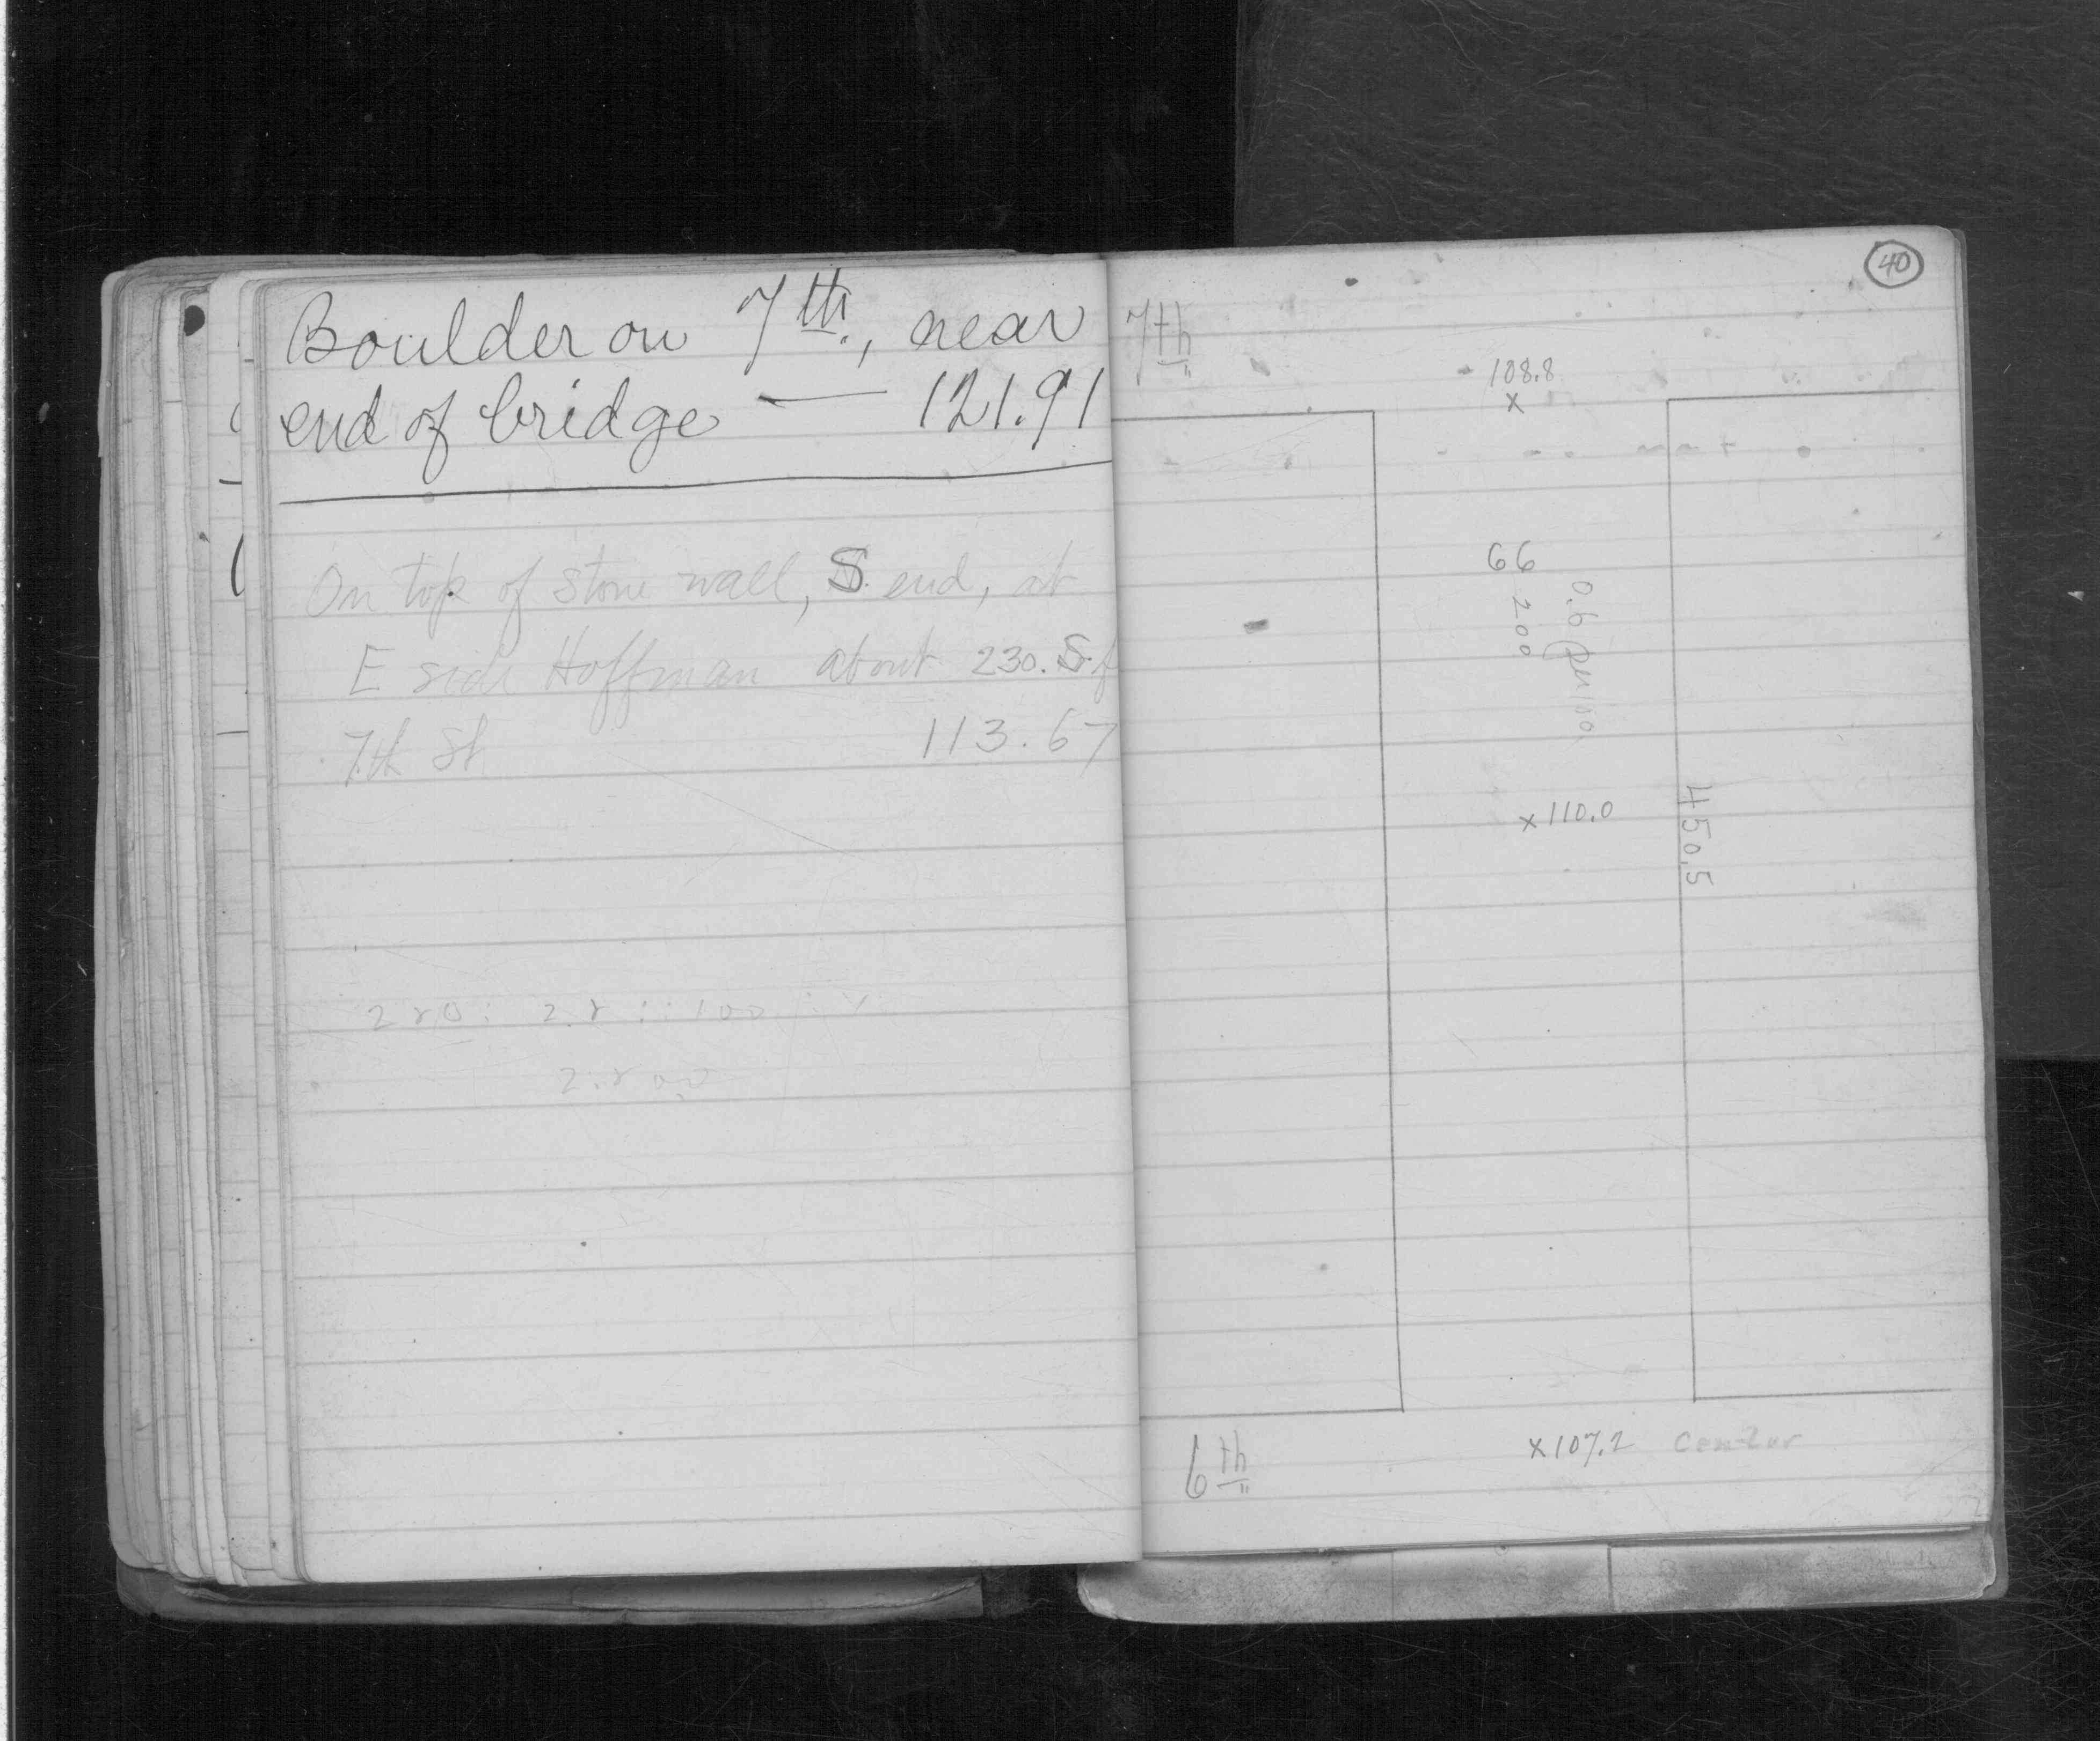 Boulder on 7th., near
end of bridge — 121.91
On top of stone wall, S. end, at
E side Hoffman about 230. S. of
7th St. 113.67
40
7th
108.8
x
66
200
0.6 per 100
x 110.0
450.5
6th
x 107.2 Center